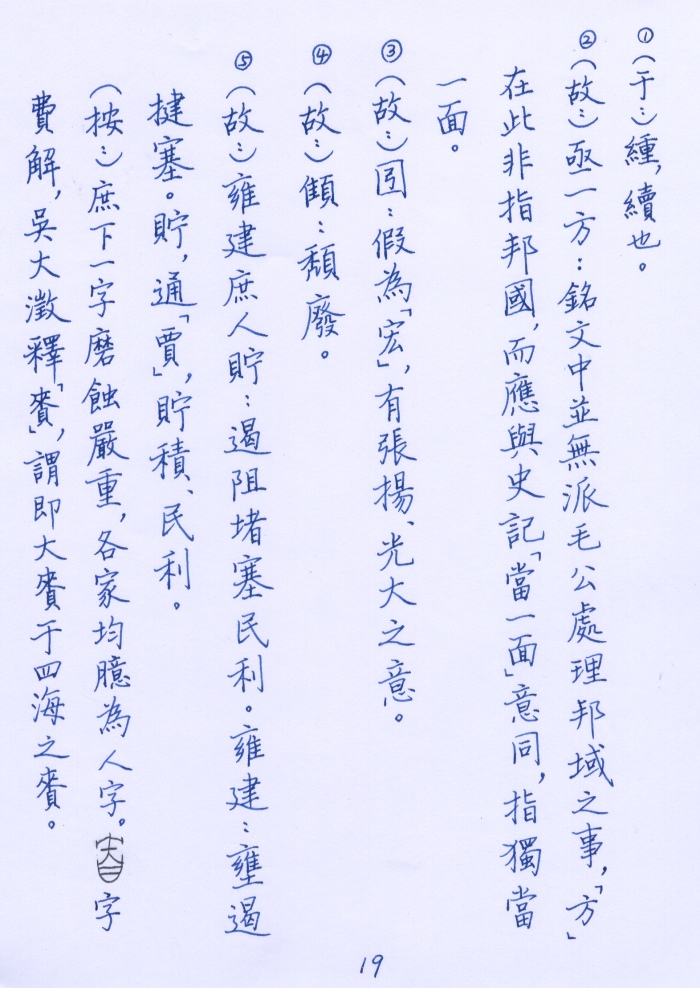 ①(于:)緟,續也。
②(故:)亟一方:銘文中並無派毛公處理邦域之事,「方」
在此非指邦國,而應與史記「當一面」意同,指獨當
一面。
③(故:)㘝:假為「宏」,有張揚、光大之意。
④(故:)頧:頹廢。
⑤(故:)雍建庶人貯:遏阻堵塞民利。雍建:壅遏
揵塞。貯,通「賈」,貯積、民利。
(按:)庶下一字磨蝕嚴重,各家均臆為人字。字
費解,吳大澂釋「賚」,謂即大賚于四海之賚。
19